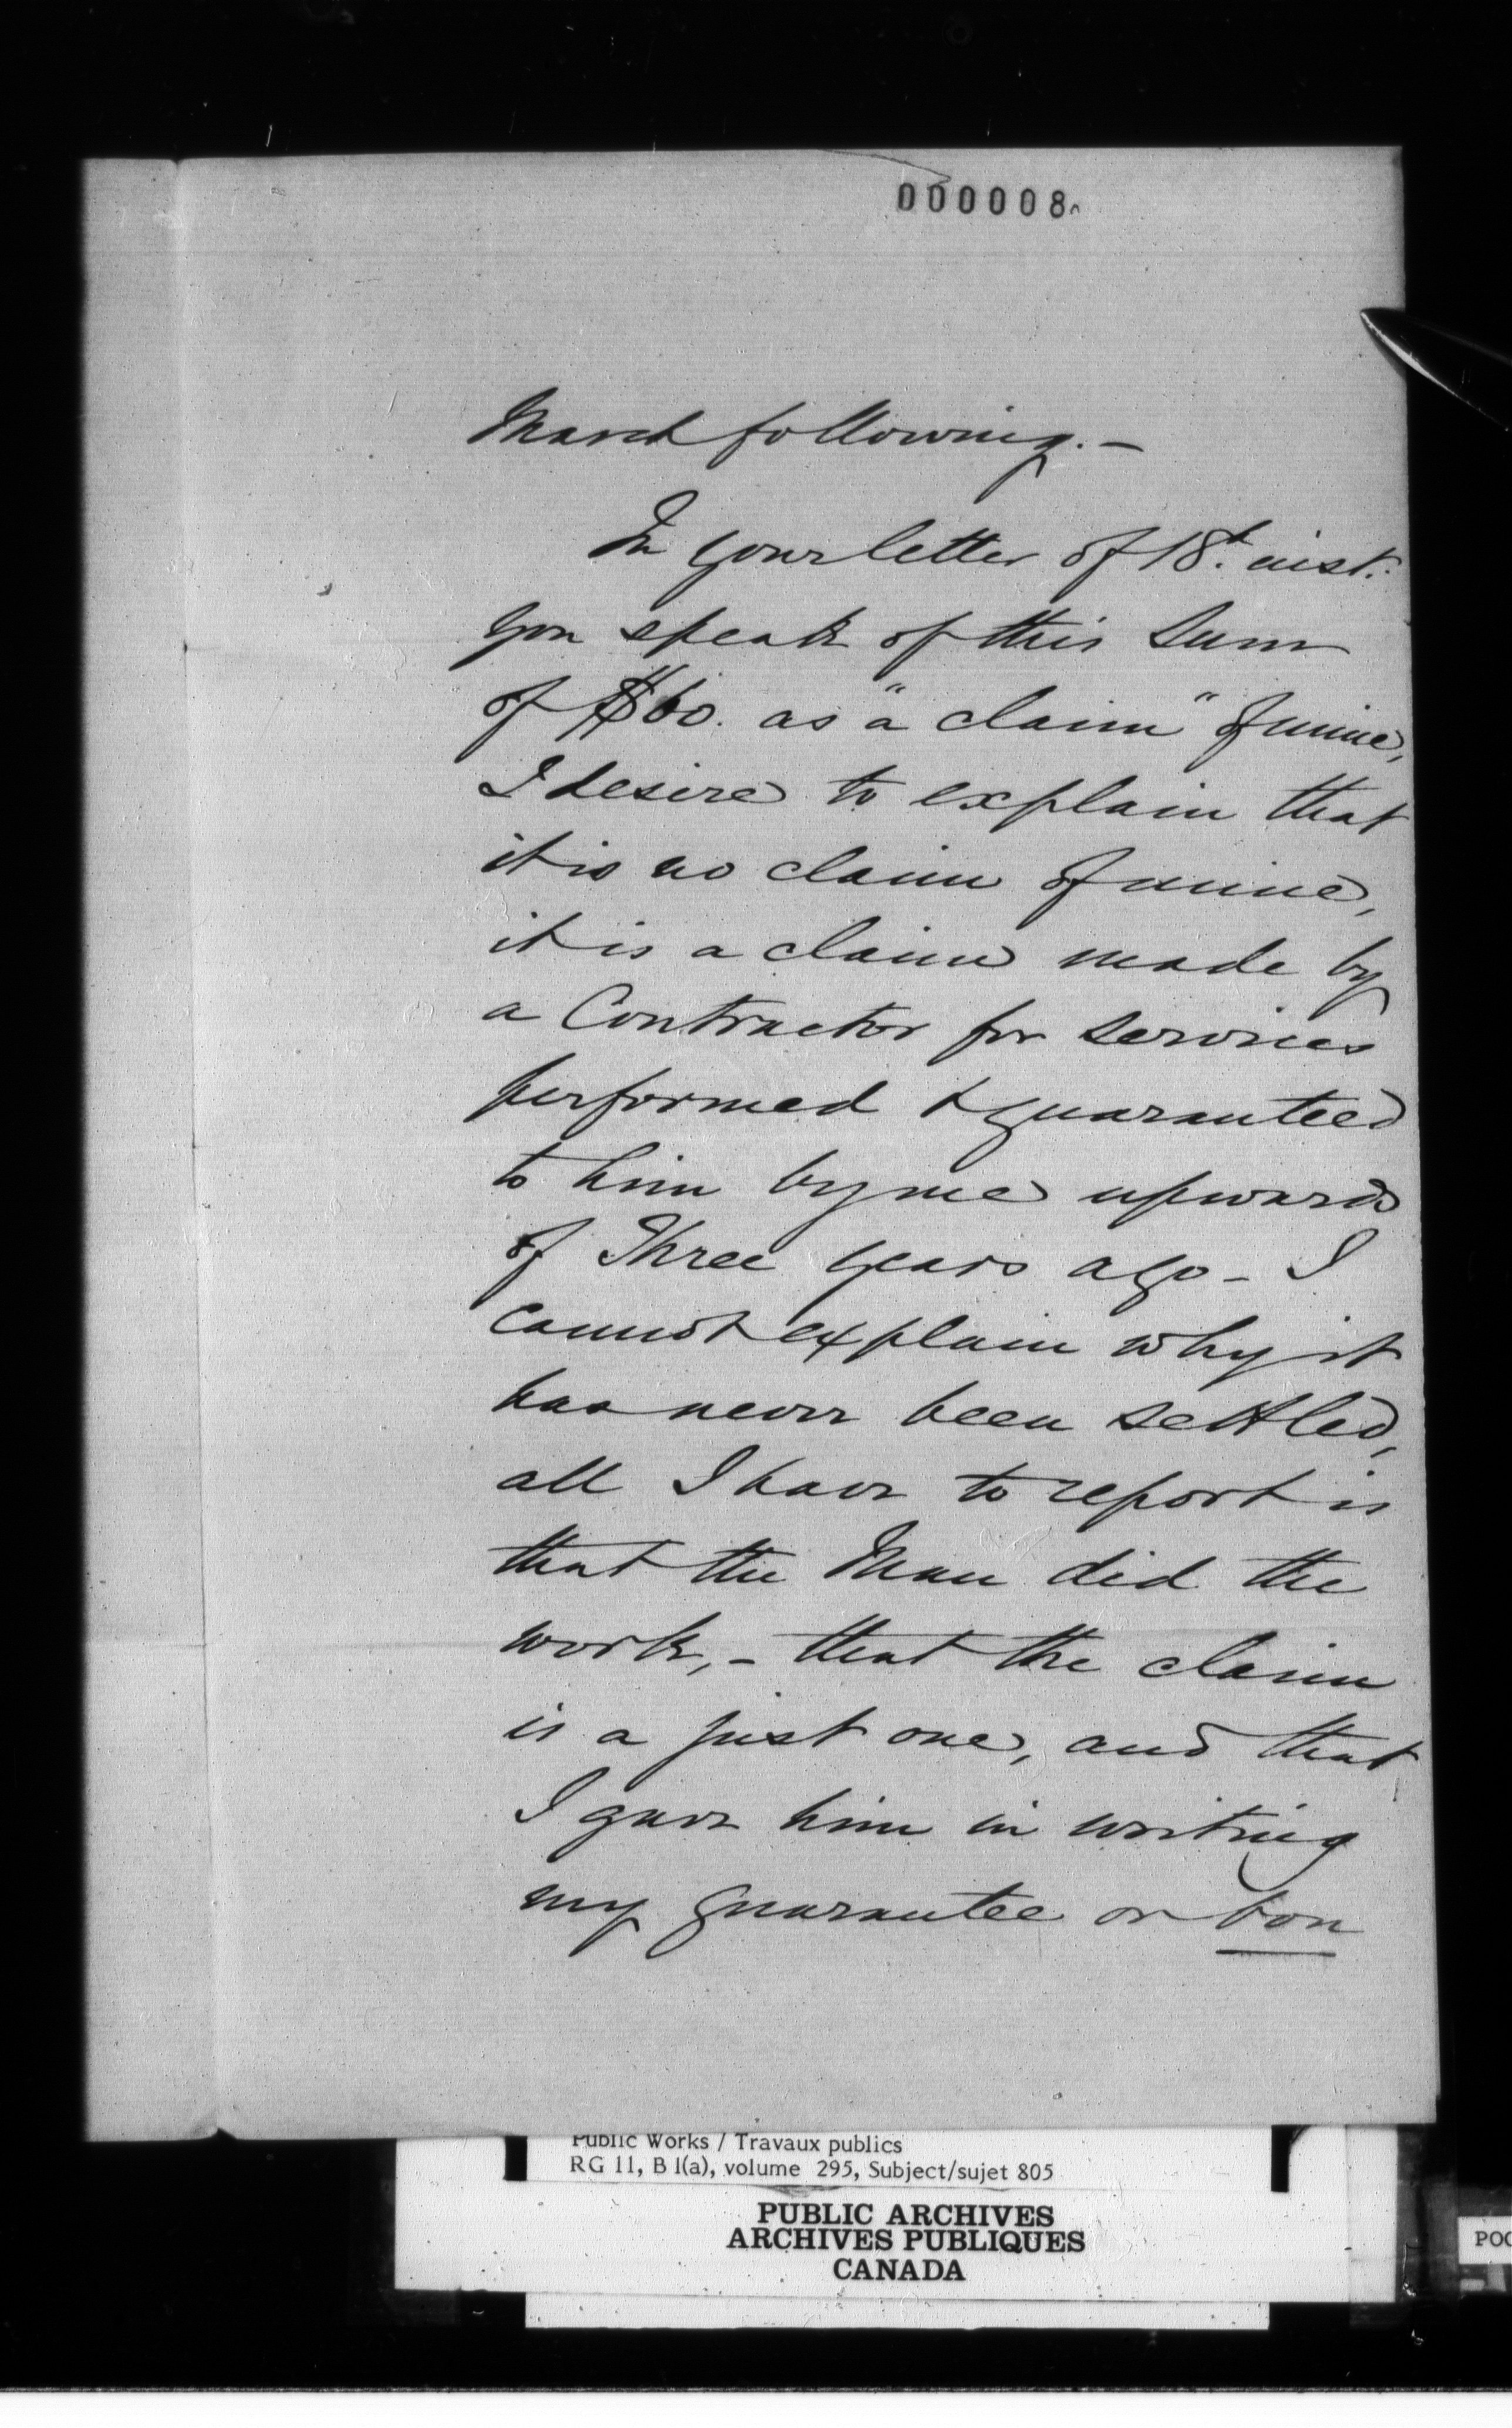 000008
March following. —
In your letter of 18t. inst.
you speak of this sum
of $60. as a "claim" of mine,
I desire to explain that
it is no claim of mine,
it is a claim made by
a Contractor for services
performed & guaranteed
to him by me upwards
of Three years ago - I
cannot explain why it
has never been settled,
all I have to report is
that the Man did the
work, - that the claim
is a just one, and that
I gave him in writing
my guarantee or bon
Public Works / Travaux publics
RG 11, B 1(a), volume 295, Subject/sujet 805
PUBLIC ARCHIVES
ARCHIVES PUBLIQUES
CANADA